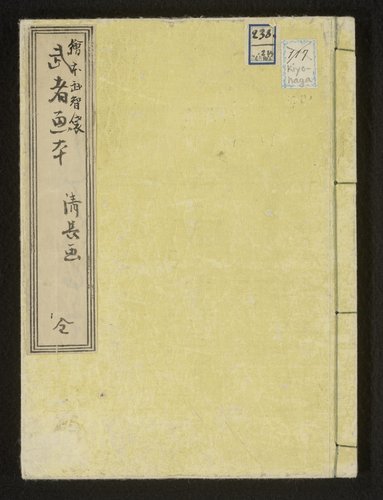 繪本武智袋
武者画本
清長画
全
238
717
Kiyo-
naga